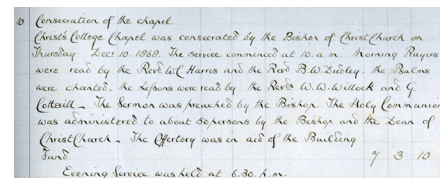 10 Consecration of the chapel.
Christ's College Chapel was consecrated by the Bishop of Christ Church on
Thursday Dec: 10. 1868. The service commenced at 10. a.m. Morning Prayers
were read by the Revd W.C. Harris and the Revd B.W. Dudley. the Psalms
were chanted. the Lessons were read by the Revds W.W. Willock and G.
Cotterill - The Sermon was preached by the Bishop. The Holy Communion
was administered to about 50 persons by the Bishop and the Dean of
Christ Church - The Offertory was in aid of the Building
Fund. 7 3 10
Evening Service was held at 6.30. p.m.